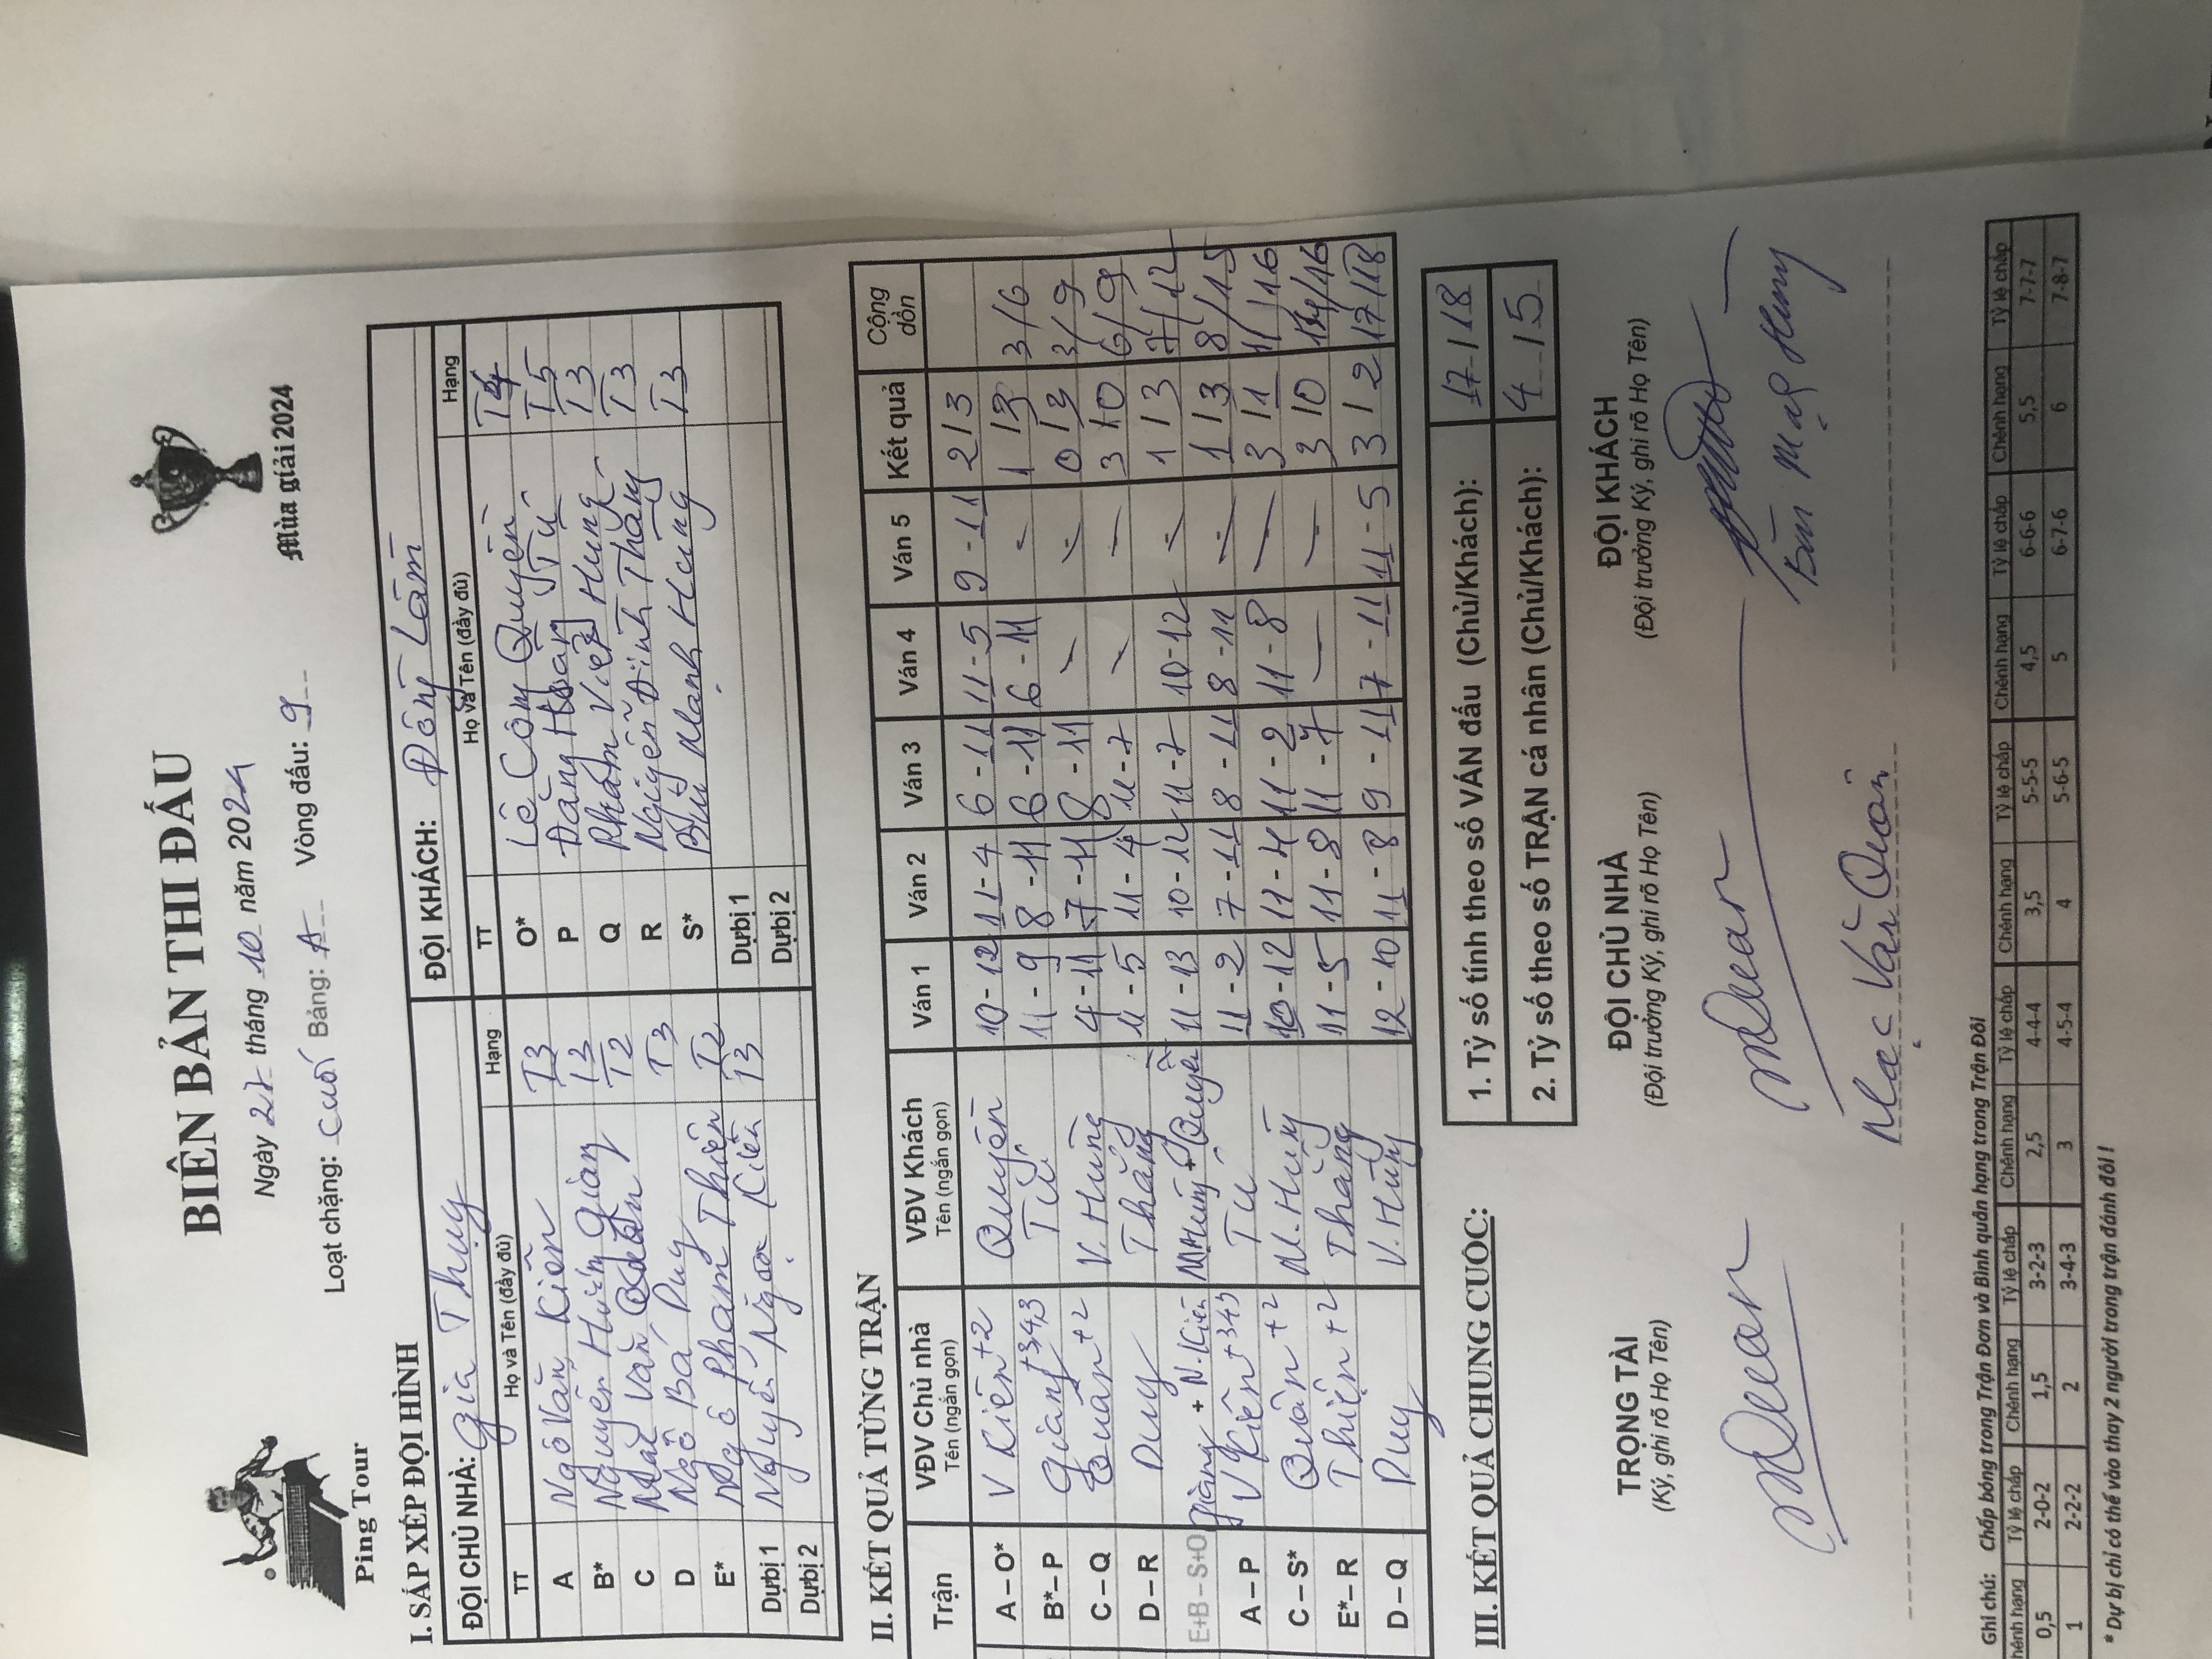 BIÊN BẢN THI ĐẤU
Mùa giải 2024
Ping Tour
Ngày 27 tháng 10 năm 2024
Loạt chặng: Cuối Bảng: A Vòng đấu: 9
I. SẮP XẾP ĐỘI HÌNH
ĐỘI CHỦ NHÀ: Gia Thụy ĐỘI KHÁCH: Đồng Lâm
TT Họ và Tên (đầy đủ) Hạng TT Họ và Tên (đầy đủ) Hạng
A Ngô Văn Kiên T3 O* Lê Công Quyền T4
B* Nguyễn Hương Giang T3 P Đặng Hoàng Tú T5
C Mạc Văn Quân T2 Q Phạm Việt Hùng T3
D Ngô Bá Duy T3 R Nguyễn Đình Thắng T3
E* Ngô Phạm Thiện T2 S* Bùi Mạnh Hùng T3
Dự bị 1 Nguyễn Ngọc Kiên T3 Dự bị 1
Dự bị 2 Dự bị 2
II. KẾT QUẢ TỪNG TRẬN
Trận VĐV Chủ nhà Tên (ngắn gọn) VĐV Khách Tên (ngắn gọn) Ván 1 Ván 2 Ván 3 Ván 4 Ván 5 Kết quả Cộng dồn
A – O* V Kiên +2 Quyền 10-12 11-4 6-11 11-5 9-11 2/3
B* – P Giang +343 Tú 11-9 8-11 6-11 6-11 - 1/3 3/6
C – Q Quân +2 V.Hùng 4-11 7-11 8-11 - - 0/3 3/9
D – R Duy Thắng 11-5 11-4 11-7 - - 3/0 6/9
E+B – S+O Giang + N.Kiên M.Hùng + Quyền 11-13 10-12 11-7 10-12 - 1/3 7/12
A – P V Kiên +343 Tú 11-2 7-11 8-11 8-11 - 1/3 8/15
C – S* Quân +2 M.Hùng 10-12 11-4 11-2 11-8 - 3/1 11/16
E* – R Thiện +2 Thắng 11-5 11-8 11-7 - - 3/0 14/16
D – Q Duy V.Hùng 12-10 11-8 9-11 7-11 11-5 3/2 17/18
III. KẾT QUẢ CHUNG CUỘC:
1. Tỷ số tính theo số VÁN đấu (Chủ/Khách): 17/18
2. Tỷ số theo số TRẬN cá nhân (Chủ/Khách): 4/5
TRỌNG TÀI ĐỘI CHỦ NHÀ ĐỘI KHÁCH
(Ký, ghi rõ Họ Tên) (Đội trưởng Ký, ghi rõ Họ Tên) (Đội trưởng Ký, ghi rõ Họ Tên)
Mạc Văn Quân Bùi Mạnh Hùng
Ghi chú: Chấp bóng trong Trận Đơn và Bình quân hạng trong Trận Đôi
hênh hạng Tỷ lệ chấp Chênh hạng Tỷ lệ chấp Chênh hạng Tỷ lệ chấp Chênh hạng Tỷ lệ chấp Chênh hạng Tỷ lệ chấp Chênh hạng Tỷ lệ chấp
0,5 2-0-2 1,5 3-2-3 2,5 4-4-4 3,5 5-5-5 4,5 6-6-6 5,5 7-7-7
1 2-2-2 2 3-4-3 3 4-5-4 4 5-6-5 5 6-7-6 6 7-8-7
* Dự bị chỉ có thể vào thay 2 người trong trận đánh đôi !